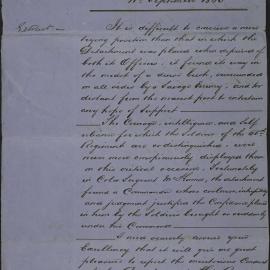 11th September 1863
Extract —
It is difficult to conceive a more
trying position than that in which the
Detachment was placed when deprived of
both its Officers, it found its way in
the midst of a dense bush, surrounded
on all sides by a Savage Enemy, and too
distant from the nearest post to entertain
any hope of Support.
The Courage, intelligence, and self
reliance for which the Soldiers of the 65th
Regiment are so distinguished, were
never more conspicuously displayed than
on this critical occasion. Fortunately
in Color Sergeant McKenna, the detachment
found a Commander whose coolness, intrepidity
and judgment justified the Confidence placed
in him by the Soldiers brought so suddenly
under his Command.
I need scarcely assure your
Excellency that it will give me great
pleasure to report the meritorious Conduct